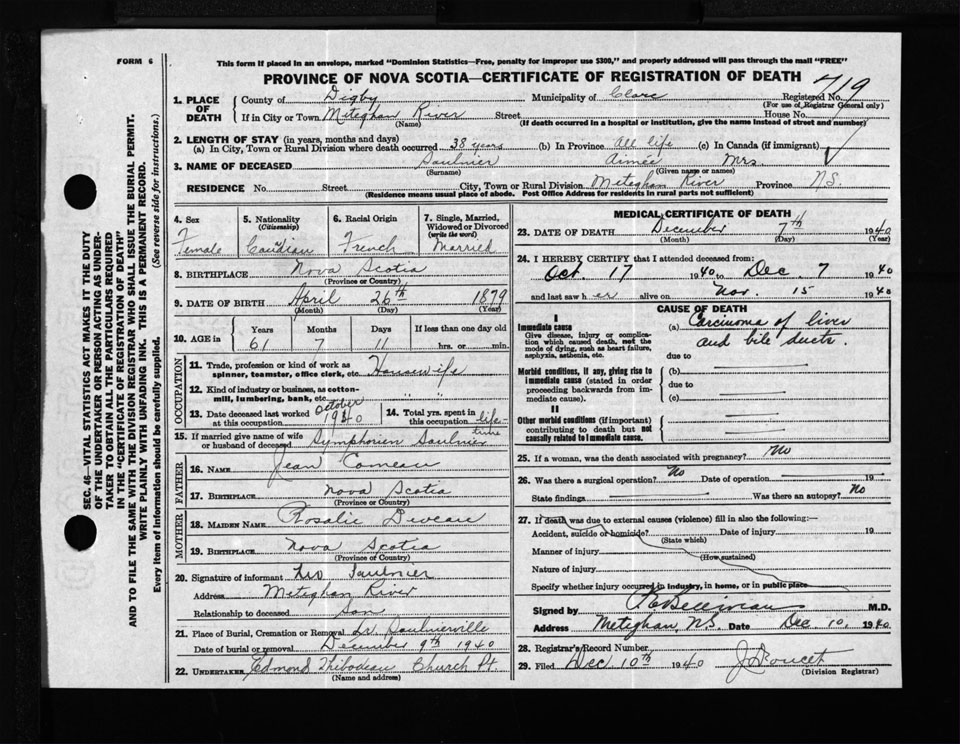 FORM 6
This form if placed in an envelope, marked "Dominion Statistics—Free, penalty for improper use $300," and properly addressed will pass through the mail "FREE"
PROVINCE OF NOVA SCOTIA—CERTIFICATE OF REGISTRATION OF DEATH
719
1. PLACE OF DEATH County of Digby Municipality of Clare Registered No.
(For use of Registrar General only)
If in City or Town Meteghan River Street House No.
(Name) (If death occurred in a hospital or institution, give the name instead of street and number)
2. LENGTH OF STAY (in years, months and days)
(a) In City, Town or Rural Division where death occurred 38 years (b) In Province All life (c) In Canada (if immigrant)
3. NAME OF DECEASED Saulnier Aimée Mrs.
(Surname) (Given name or names)
RESIDENCE No. Street City, Town or Rural Division Meteghan River Province N.S.
(Residence means usual place of abode. Post Office Address for residents in rural parts not sufficient)
SEC. 46—VITAL STATISTICS ACT MAKES IT THE DUTY
OF THE UNDERTAKER OR PERSON ACTING AS UNDER-
TAKER TO OBTAIN ALL THE PARTICULARS REQUIRED
IN THE "CERTIFICATE OF REGISTRATION OF DEATH"
AND TO FILE THE SAME WITH THE DIVISION REGISTRAR WHO SHALL ISSUE THE BURIAL PERMIT.
WRITE PLAINLY WITH UNFADING INK. THIS IS A PERMANENT RECORD.
Every item of Information should be carefully supplied. (See reverse side for instructions.)
4. Sex Female
5. Nationality (Citizenship) Canadian
6. Racial Origin French
7. Single, Married, Widowed or Divorced (write the word) Married
8. BIRTHPLACE Nova Scotia
(Province or Country)
9. DATE OF BIRTH April 26th 1879
(Month) (Day) (Year)
10. AGE in Years Months Days If less than one day old
61 7 11 hrs. or min.
OCCUPATION
11. Trade, profession or kind of work as spinner, teamster, office clerk, etc. Housewife
12. Kind of industry or business, as cotton-mill, lumbering, bank, etc. " "
13. Date deceased last worked at this occupation October 1940
14. Total yrs. spent in this occupation life-time
15. If married give name of wife or husband of deceased Symphorien Saulnier
FATHER
16. NAME Jean Comeau
17. BIRTHPLACE Nova Scotia
(Province or Country)
MOTHER
18. MAIDEN NAME Rosalie Deveau
19. BIRTHPLACE Nova Scotia
(Province or Country)
20. Signature of informant Leo Saulnier
Address Meteghan River
Relationship to deceased Son
21. Place of Burial, Cremation or Removal Lr. Saulnierville
Date of burial or removal December 9th 1940
22. UNDERTAKER Edmond Thibodeau Church Pt.
(Name and address)
MEDICAL CERTIFICATE OF DEATH
23. DATE OF DEATH December 7th 1940
(Month) (Day) (Year)
24. I HEREBY CERTIFY that I attended deceased from:
Oct. 17 1940 to Dec. 7 1940
and last saw her alive on Nov. 15 1940
CAUSE OF DEATH
I
Immediate cause
Give disease, injury or complication which caused death, not the mode of dying, such as heart failure, asphyxia, asthenia, etc.
(a) Carcinoma of liver
and bile ducts.
due to
Morbid conditions, if any, giving rise to immediate cause (stated in order proceeding backwards from immediate cause).
(b)
due to
(c)
II
Other morbid conditions (if important) contributing to death but not causally related to immediate cause.
25. If a woman, was the death associated with pregnancy? No
26. Was there a surgical operation? No Date of operation 19
State findings Was there an autopsy? No
27. If death was due to external causes (violence) fill in also the following:—
Accident, suicide or homicide? Date of injury 19
(State which)
Manner of injury
(How sustained)
Nature of injury
Specify whether injury occurred in industry, in home, or in public place
Signed by M.D.
Address Meteghan, N.S. Date Dec. 10, 1940
28. Registrar's Record Number
29. Filed Dec 10th 1940 J Doucet
(Division Registrar)